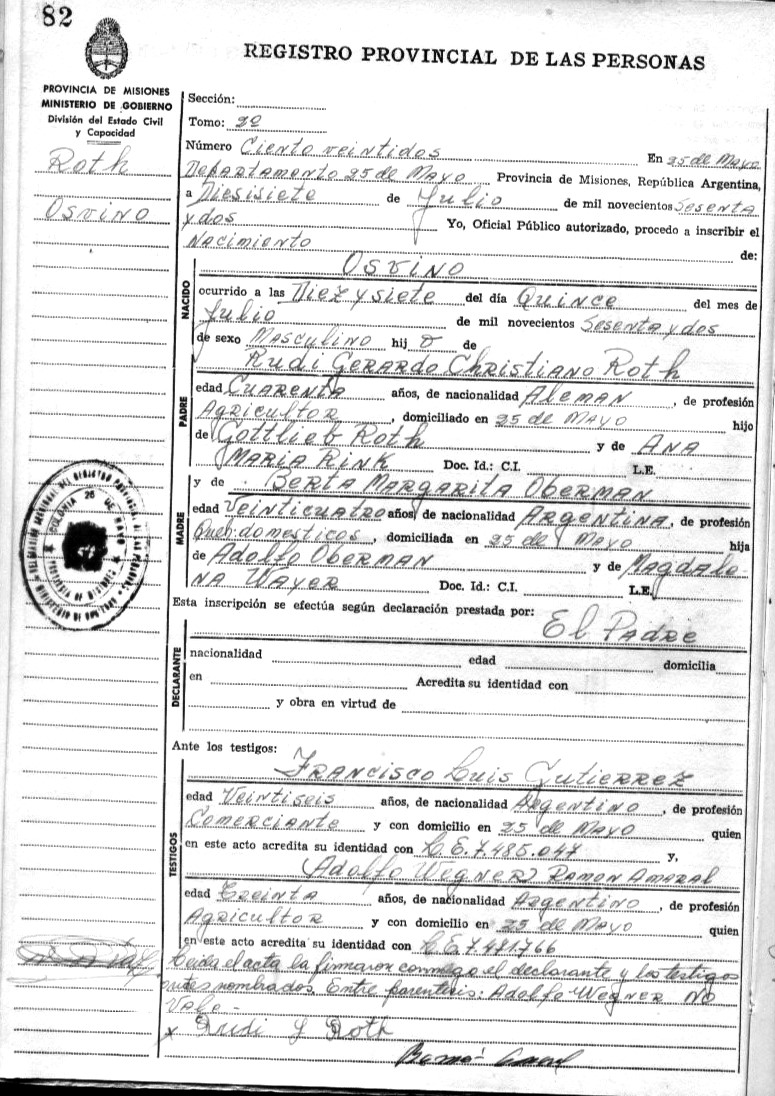 82
REGISTRO PROVINCIAL DE LAS PERSONAS
PROVINCIA DE MISIONES
MINISTERIO DE GOBIERNO
División del Estado Civil
y Capacidad
Roth
Osvino
Sección:
Tomo: 2º
Número Ciento veintidos En 25 de Mayo
Departamento 25 de Mayo Provincia de Misiones, República Argentina,
a Diesisiete de Julio de mil novecientos Sesenta
y dos Yo, Oficial Público autorizado, procedo a inscribir el
Nacimiento de:
Osvino
NACIDO
ocurrido a las Diez y siete del día Quince del mes de
Julio de mil novecientos Sesenta y dos
de sexo Masculino hij o de
Rudi Gerardo Christiano Roth
PADRE
edad Cuarenta años, de nacionalidad Aleman, de profesión
Agricultor, domiciliado en 25 de Mayo hijo
de Gottlieb Roth y de Ana
Maria Rink Doc. Id.: C.I. L.E.
MADRE
y de Berta Margarita Oberman
edad Veinticuatro años, de nacionalidad Argentina, de profesión
Quehidomesticos, domiciliada en 25 de Mayo hija
de Adolfo Oberman y de Magdale
na Wayer Doc. Id.: C.I. L.E.
Esta inscripción se efectúa según declaración prestada por:
El Padre
DECLARANTE
nacionalidad edad domicilia
en Acredita su identidad con
y obra en virtud de
Ante los testigos:
Francisco Luis Gutierrez
TESTIGOS
edad Veintiseis años, de nacionalidad Argentino, de profesión
Comerciante y con domicilio en 25 de Mayo quien
en este acto acredita su identidad con L.E. 7.485.047 y,
(Adolfo Wegner) Ramon Amaral
edad Treinta años, de nacionalidad Argentino, de profesión
Agricultor y con domicilio en 25 de Mayo quien
en este acto acredita su identidad con L.E. 7.481.766
Leida el acta la firmaron conmigo el declarante y los testigos
antes nombrados. Entre parentesis: Adolfo Wegner No
Vale-
x Rudi G Roth